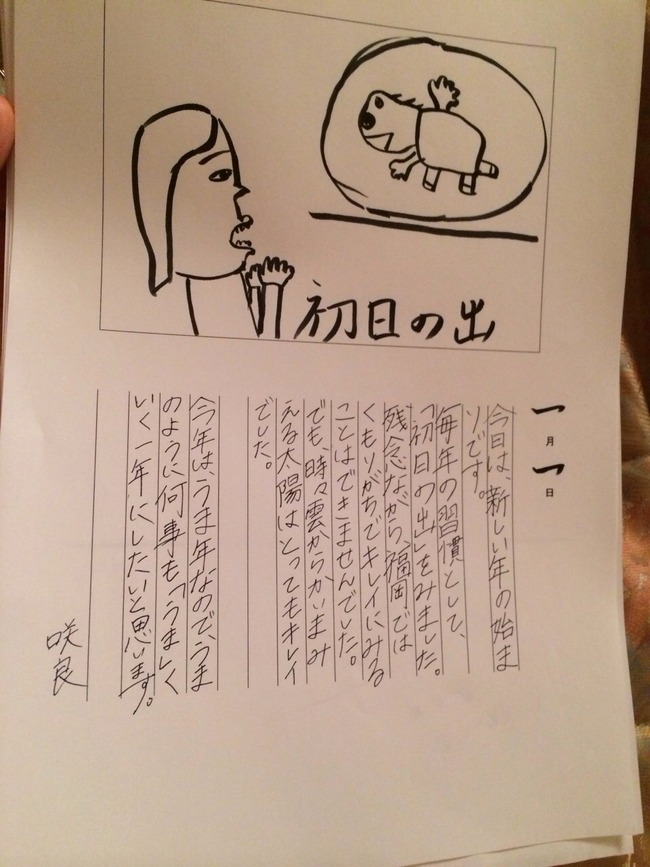 初日の出
一月一日
今日は、新しい年の始ま
りです。
毎年の習慣として、
「初日の出」をみました。
残念ながら、福岡では
くもりがちでキレイにみる
ことはできませんでした。
でも、時々雲からかいまみ
える太陽はとってもキレイ
でした。
今年は、うま年なので、うま
のように何事も「うましく
いく一年にしたいと思います。
咲良